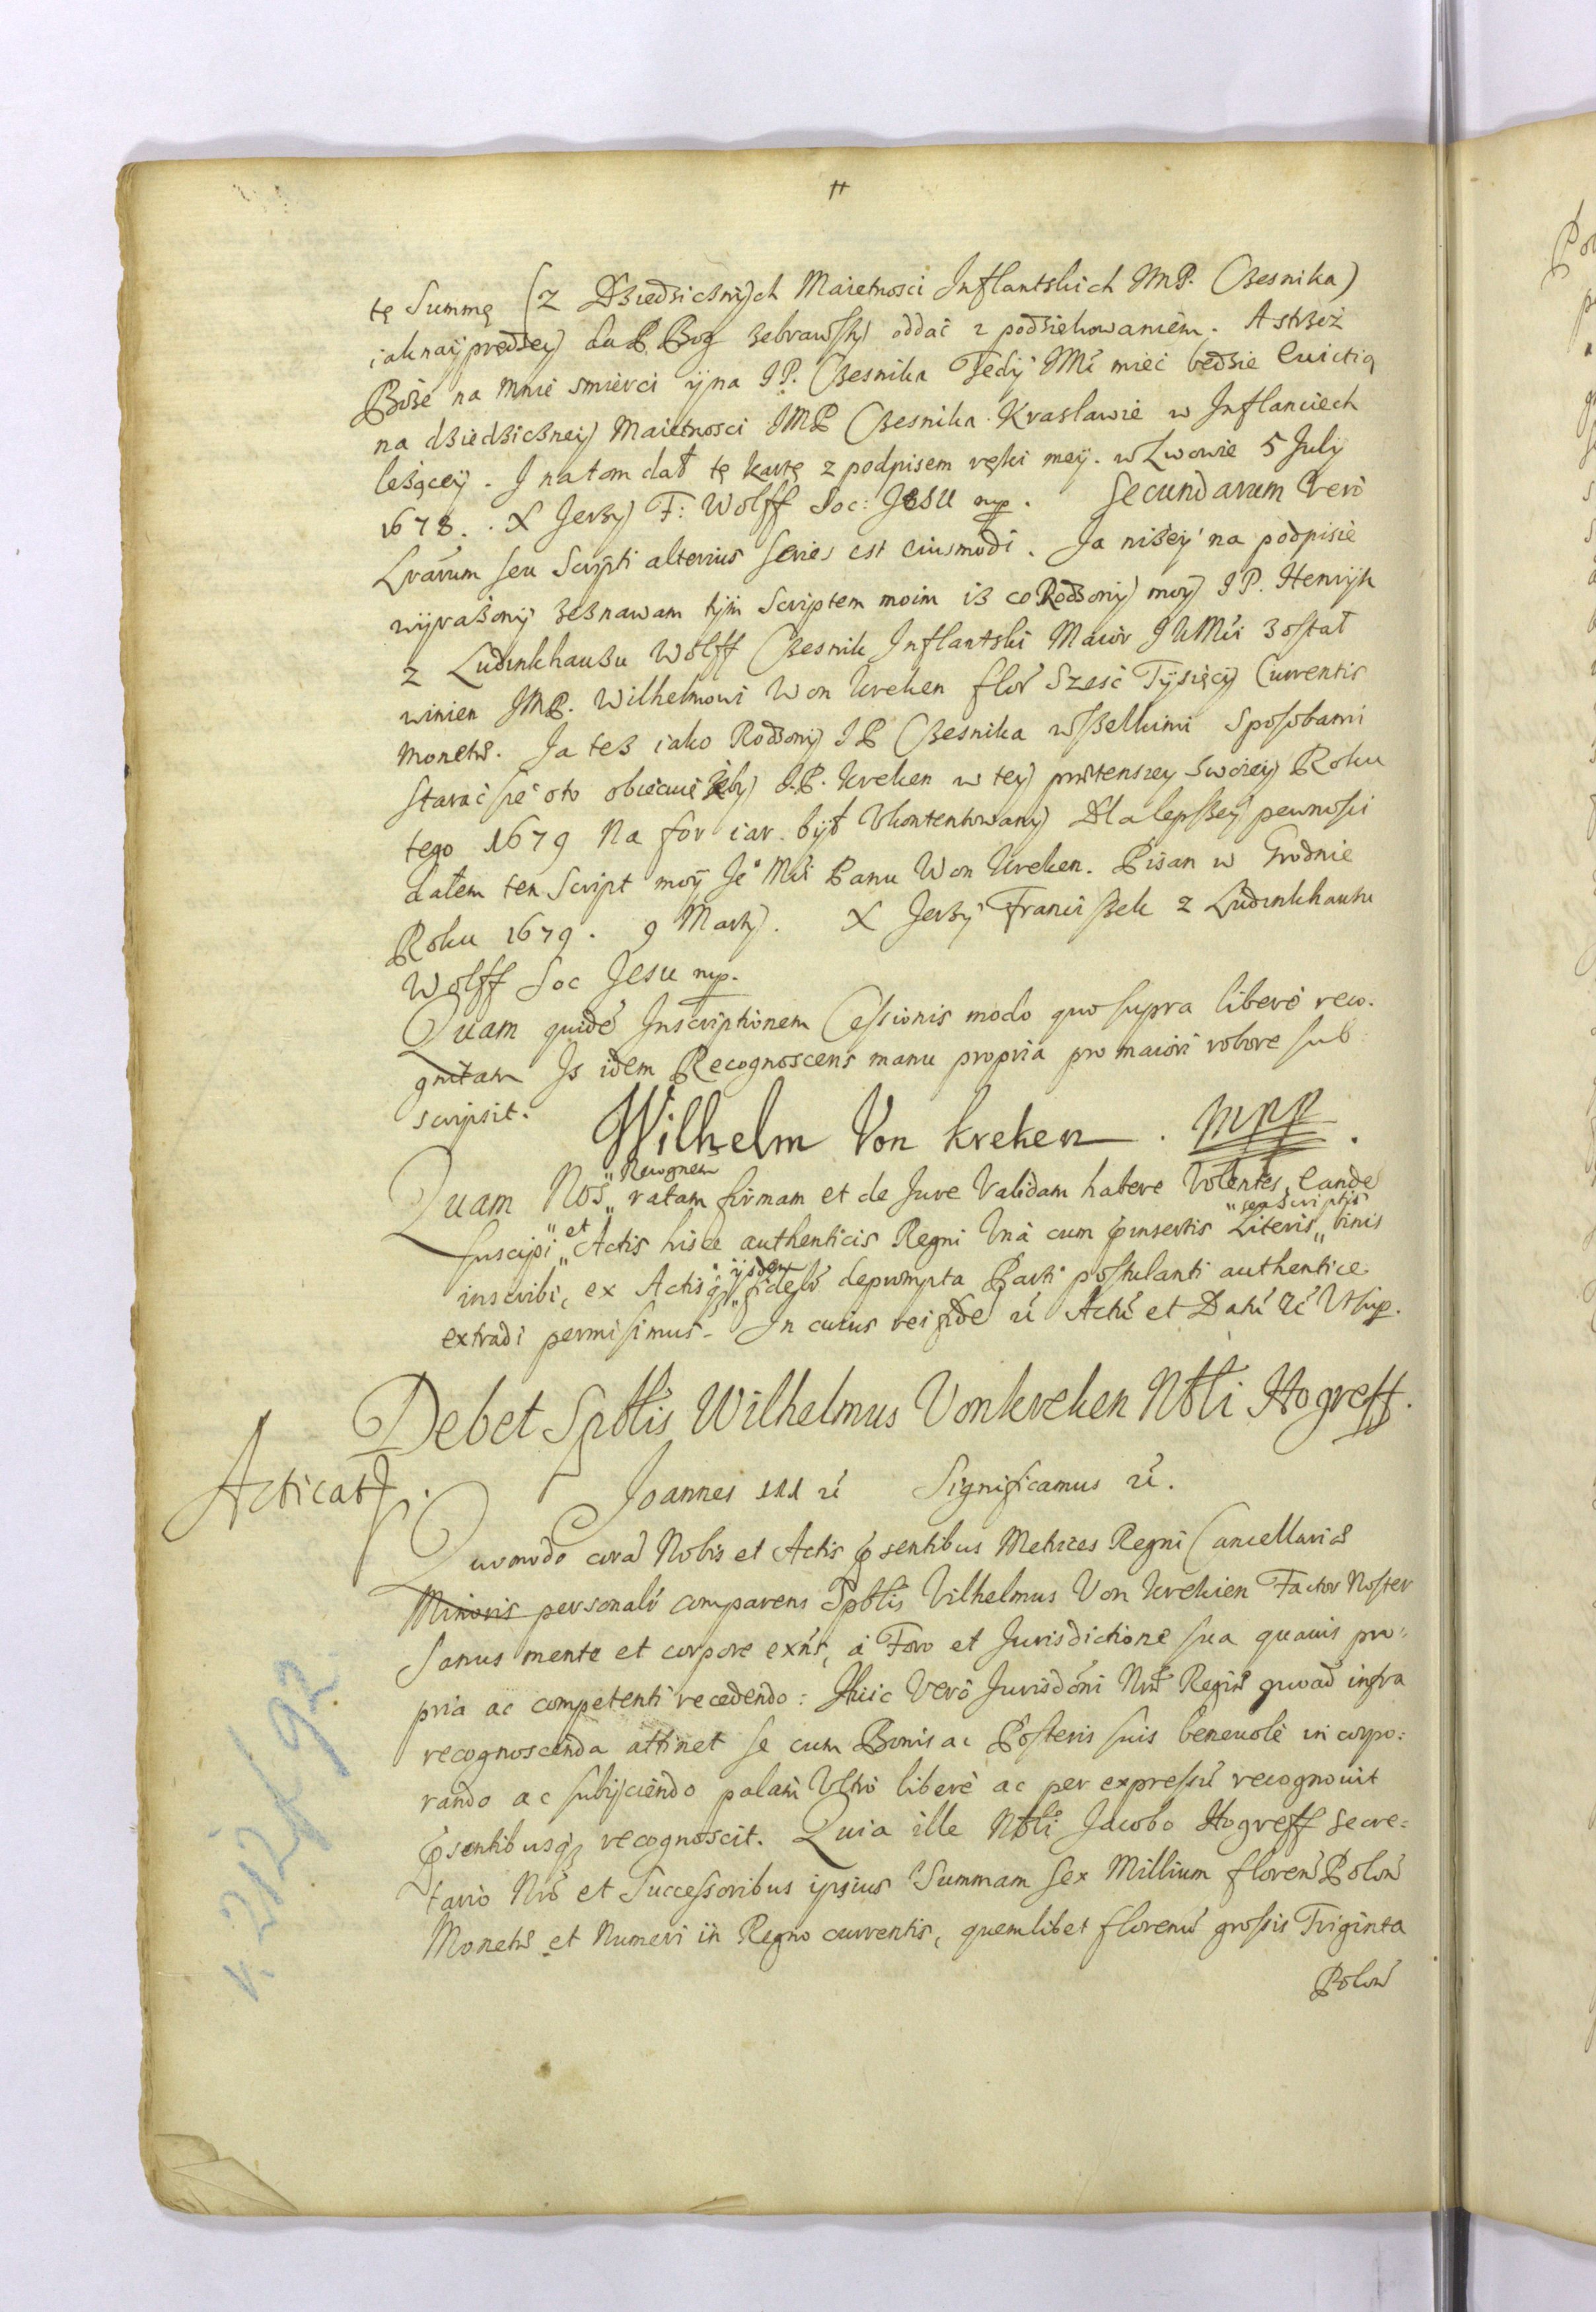 tę Summę (z Dziedzicznÿch Maietnosci Inflantskich JMP. Czesnika)
iak nayprędzey da P. Bog zebrawszÿ oddać z podziekowaniem. A strzeż
Boże na mnie smierci ÿ na JP. Czesnika Tedÿ JMć mieć bedzie Euictią
na dziedziczneÿ Maietnosci JMP Czesnika Krasławie w Inflanciech
leżąceÿ. J na tom dał tę kartę z podpisem ręki meÿ. w Lwowie 5 Julÿ
1678. X Jerzÿ F: Wolff Soc: Jesu mp. Secundarum vero
Lrarum seu Scripti alterius series est eiusmodi. Ja niżeÿ na podpisie
wÿrażonÿ zeznawam tÿm Scriptem moim iż co Rodzonÿ moÿ JP. Henrÿk
z Ludinkhauzu Wolff Czesnik Inflantski Maior JKMći został
winien JMP. Wilhelmowi Won Kreken flor Szesć Tÿsięcÿ Currentis
Monetæ. Ja też iako Rodzonÿ JP Czesnika wszelkimi sposobami
starać się o to obiecuię żebÿ J.P. Kreken w teÿ prætensieÿ swoieÿ Roku
tego 1679 na for iar. bÿł Ukontentowanÿ Dla lepszeÿ pewnosci
dałem ten Script moÿ Je° Mći Panu Won Kreken. Pisan w Grodnie
Roku 1679. 9 Martÿ. X Jerzÿ Franciszek z Ludinkhauzu
Wolff Soc Jesu mp.
Quam quidē Inscriptionem Cessionis modo quo supra liberè reco-
gnitam Is idem Recognoscens manu propria pro maiori robore sub
scripsit.
Wilhelm Von Kreken. mpp.
Quam Nos "Recognem" ratam firmam et de Jure Validam habere Volentes, eandē
suscipi "et" Actis hisce authenticis Regni Unà cum præinsertis Literis "seu Scriptis" binis
inscribi, ex Actisq; "ijsdem" fidelr depromptā Parti postulanti authentice
extradi permisimus. In cuius rei fidē ū Actū et Datū ū Ut sup.
Debet Spblis Wilhelmus Vonkreken Nbli Hogreff.
Acticatq.
Joannes III ū Significamus ū.
Quomodo corā Nobis et Actis præsentibus Metrices Regni Cancellariæ
Minoris personalr comparens Spblis Vilhelmus Von Krekien Factor Noster
Sanus mente et corpore exn̄s, à Foro et Jurisdictione sua quauis pro-
pria ac competenti recedendo: Huic verò Jurisdōni Nræ Regiæ quoad infra
recognoscenda attinet se cum Bonis ac Posteris suis beneuolè incorpo:
rando ac subijciendo palam Ultrò liberè ac per expressū recognouit
præsentibusq; recognoscit. Quia ille Nbli Jacobo Hogreff Secre=
tario Nrō et Successoribus ipsius Summam Sex Millium floren Polon
Monetæ et Numeri in Regno currentis, quemlibet florenū grossis Triginta
Polon